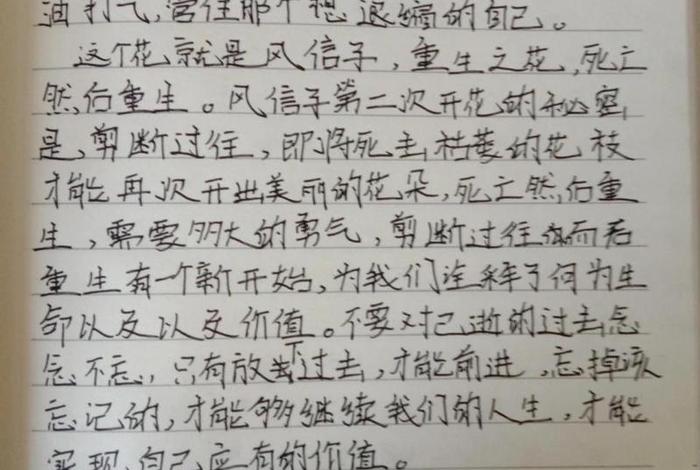 油打气,管住那个想退缩的自己。
这个花就是风信子,重生之花,死亡
然后重生。风信子第二次开花的秘密
是,剪断过往,即将死去枯萎的花枝
才能再次开出美丽的花朵,死亡然后重
生,需要多大的勇气,剪断过往从而后
重生有一个新开始,为我们诠释了何为生
命以及以及价值。不要对已逝的过去念
念不忘,只有放下过去,才能前进,忘掉该
忘记的,才能够继续我们的人生,才能
实现自己应有的价值。